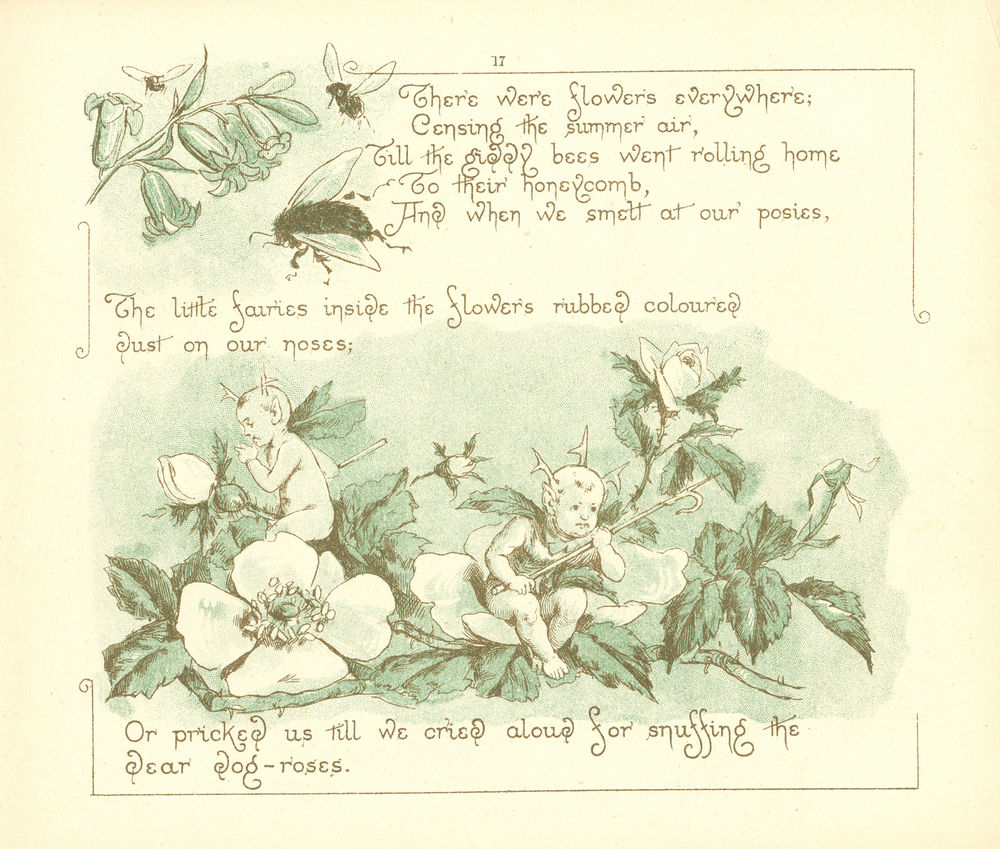 17
There were flowers everywhere;
Censing the summer air,
Till the giddy bees went rolling home
To their honeycomb,
And when we smelt at our posies,
The little fairies inside the flowers rubbed coloured
dust on our noses;
Or pricked us till we cried aloud for snuffing the
dear dog-roses.